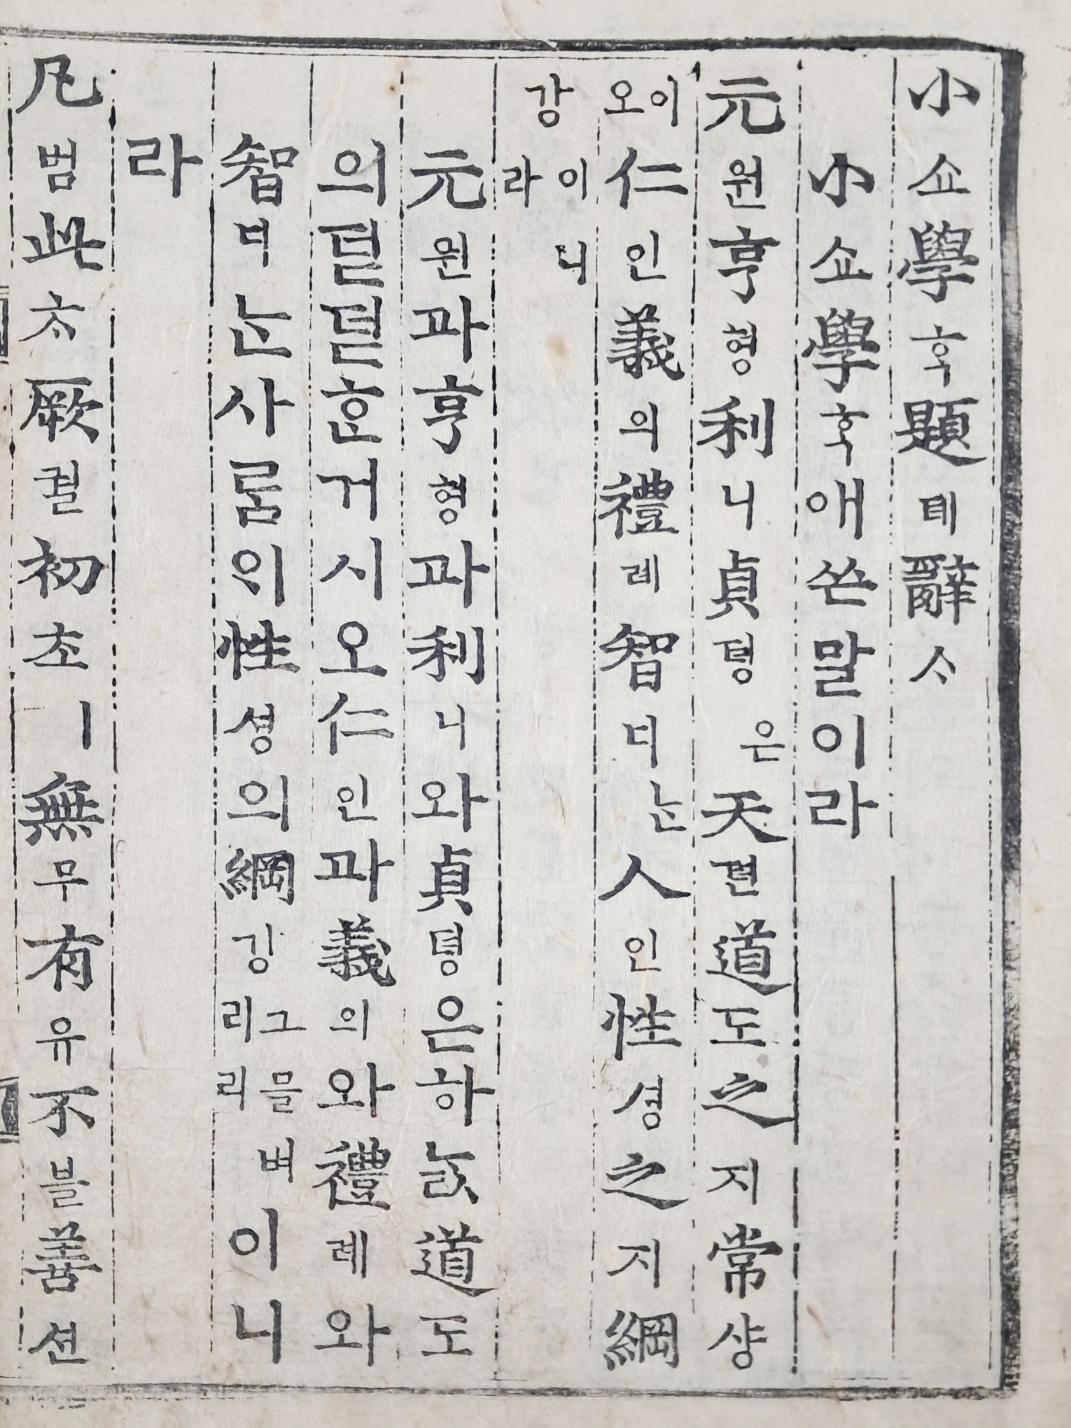 小쇼學ᄒᆞᆨ題뎨辭ᄉᆞ
小쇼學ᄒᆞᆨ애쓴말이라
元원亨형利니貞뎡은天텬道도之지常샹
이오仁인義의禮례智디ᄂᆞᆫ人인性셩之지綱
강이니라
元원과亨형과利니와貞뎡은하ᄂᆞᆳ道도
의덛덛ᄒᆞᆫ거시오仁인과義의와禮례와
智디ᄂᆞᆫ사ᄅᆞᆷ이性셩의綱강그믈벼리리이니
라
凡범此ᄎᆞ厥궐初초ㅣ無무有유不블善션